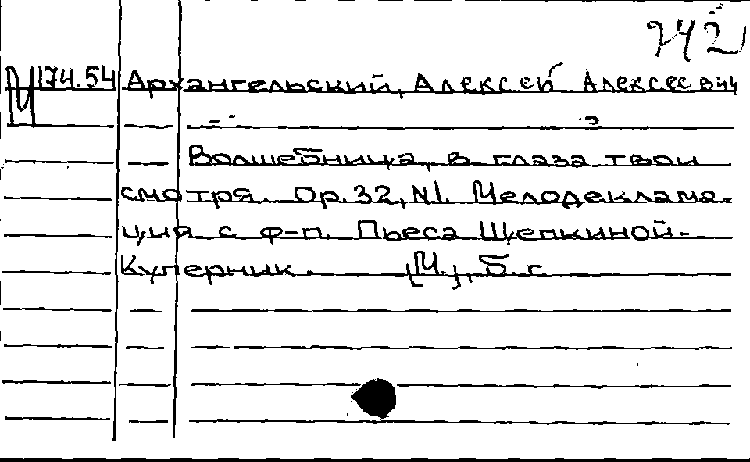 742
М 174.54 Архангельский, Алексей Алексеевич
Волшебница, в глаза твои
смотря. Op. 32, N1. Мелодеклама-
ция с ф-п. Пьеса Щепкиной-
Куперник. [М.], б. г.